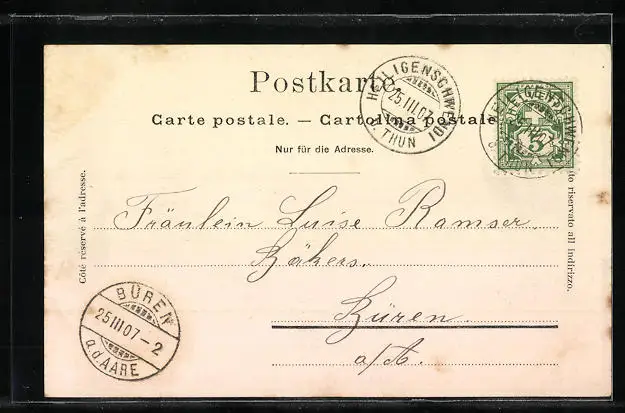 Postkarte
Carte postale. — Cartolina postale
Nur für die Adresse.
HEILIGENSCHWENDI
25 III 07
THUN
5
Côté réservé à l'adresse.
riservato all indirizzo.
Fräulein Luise Ramser.
Büren.
a/A.
BÜREN
25 III 07 - 2
a.d AARE